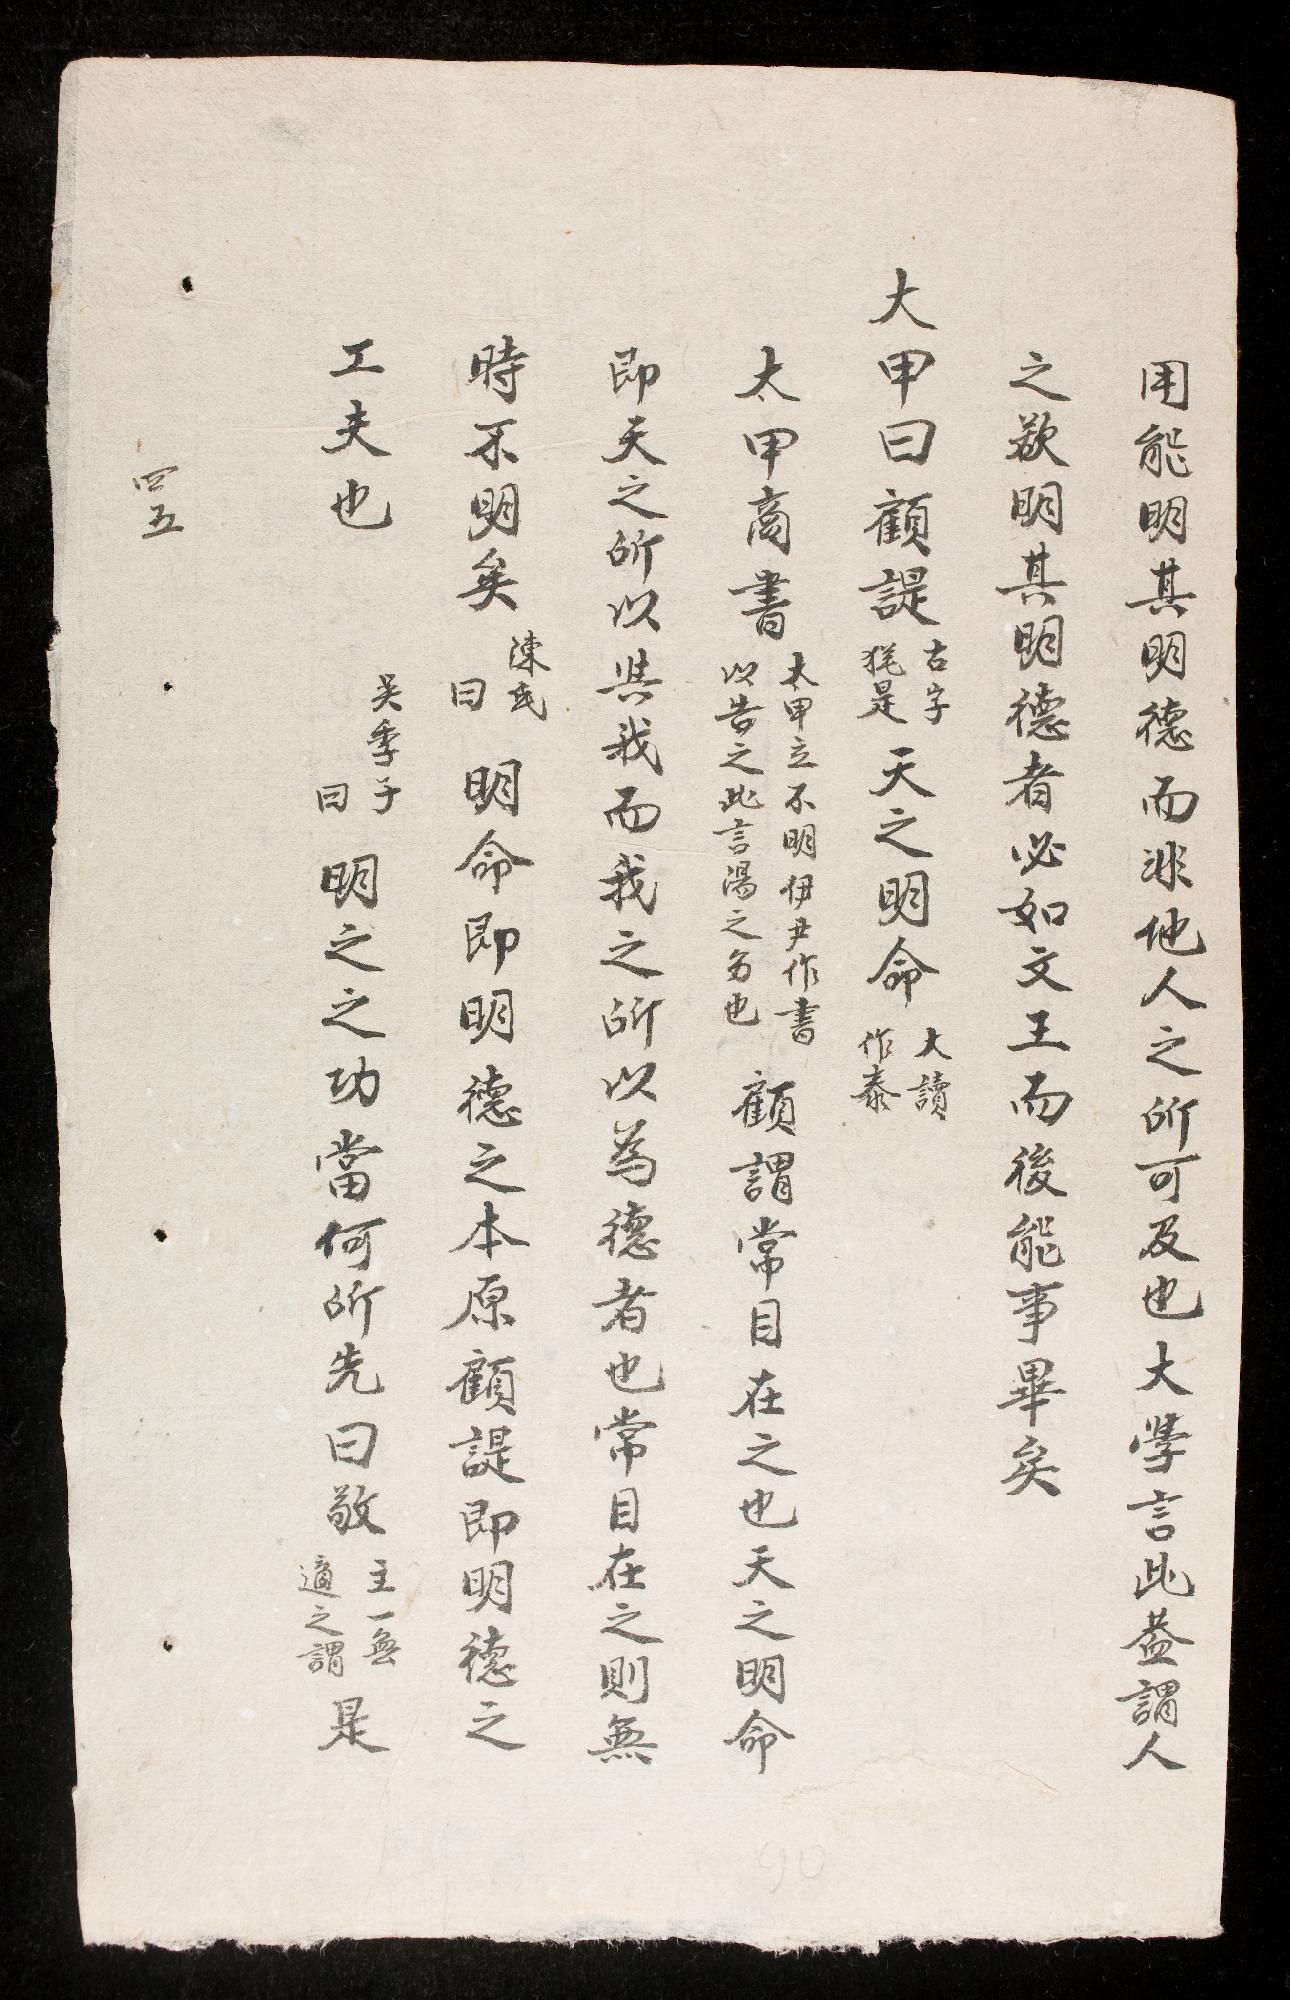 用能明其明德而非他人之所可及也大學言此蓋謂人
之欲明其明德者必如文王而後能事畢矣
大甲曰顧諟古字猶是天之明命大讀作泰
太甲商書太甲立不明伊尹作書以告之此言湯之名也顧謂常目在之也天之明命
即天之所以與我而我之所以為德者也常目在之則無
時不明矣陳氏曰明命即明德之本原顧諟即明德之
工夫也 吴季子曰明之之功當何所先曰敬主一無適之謂是
四五
90